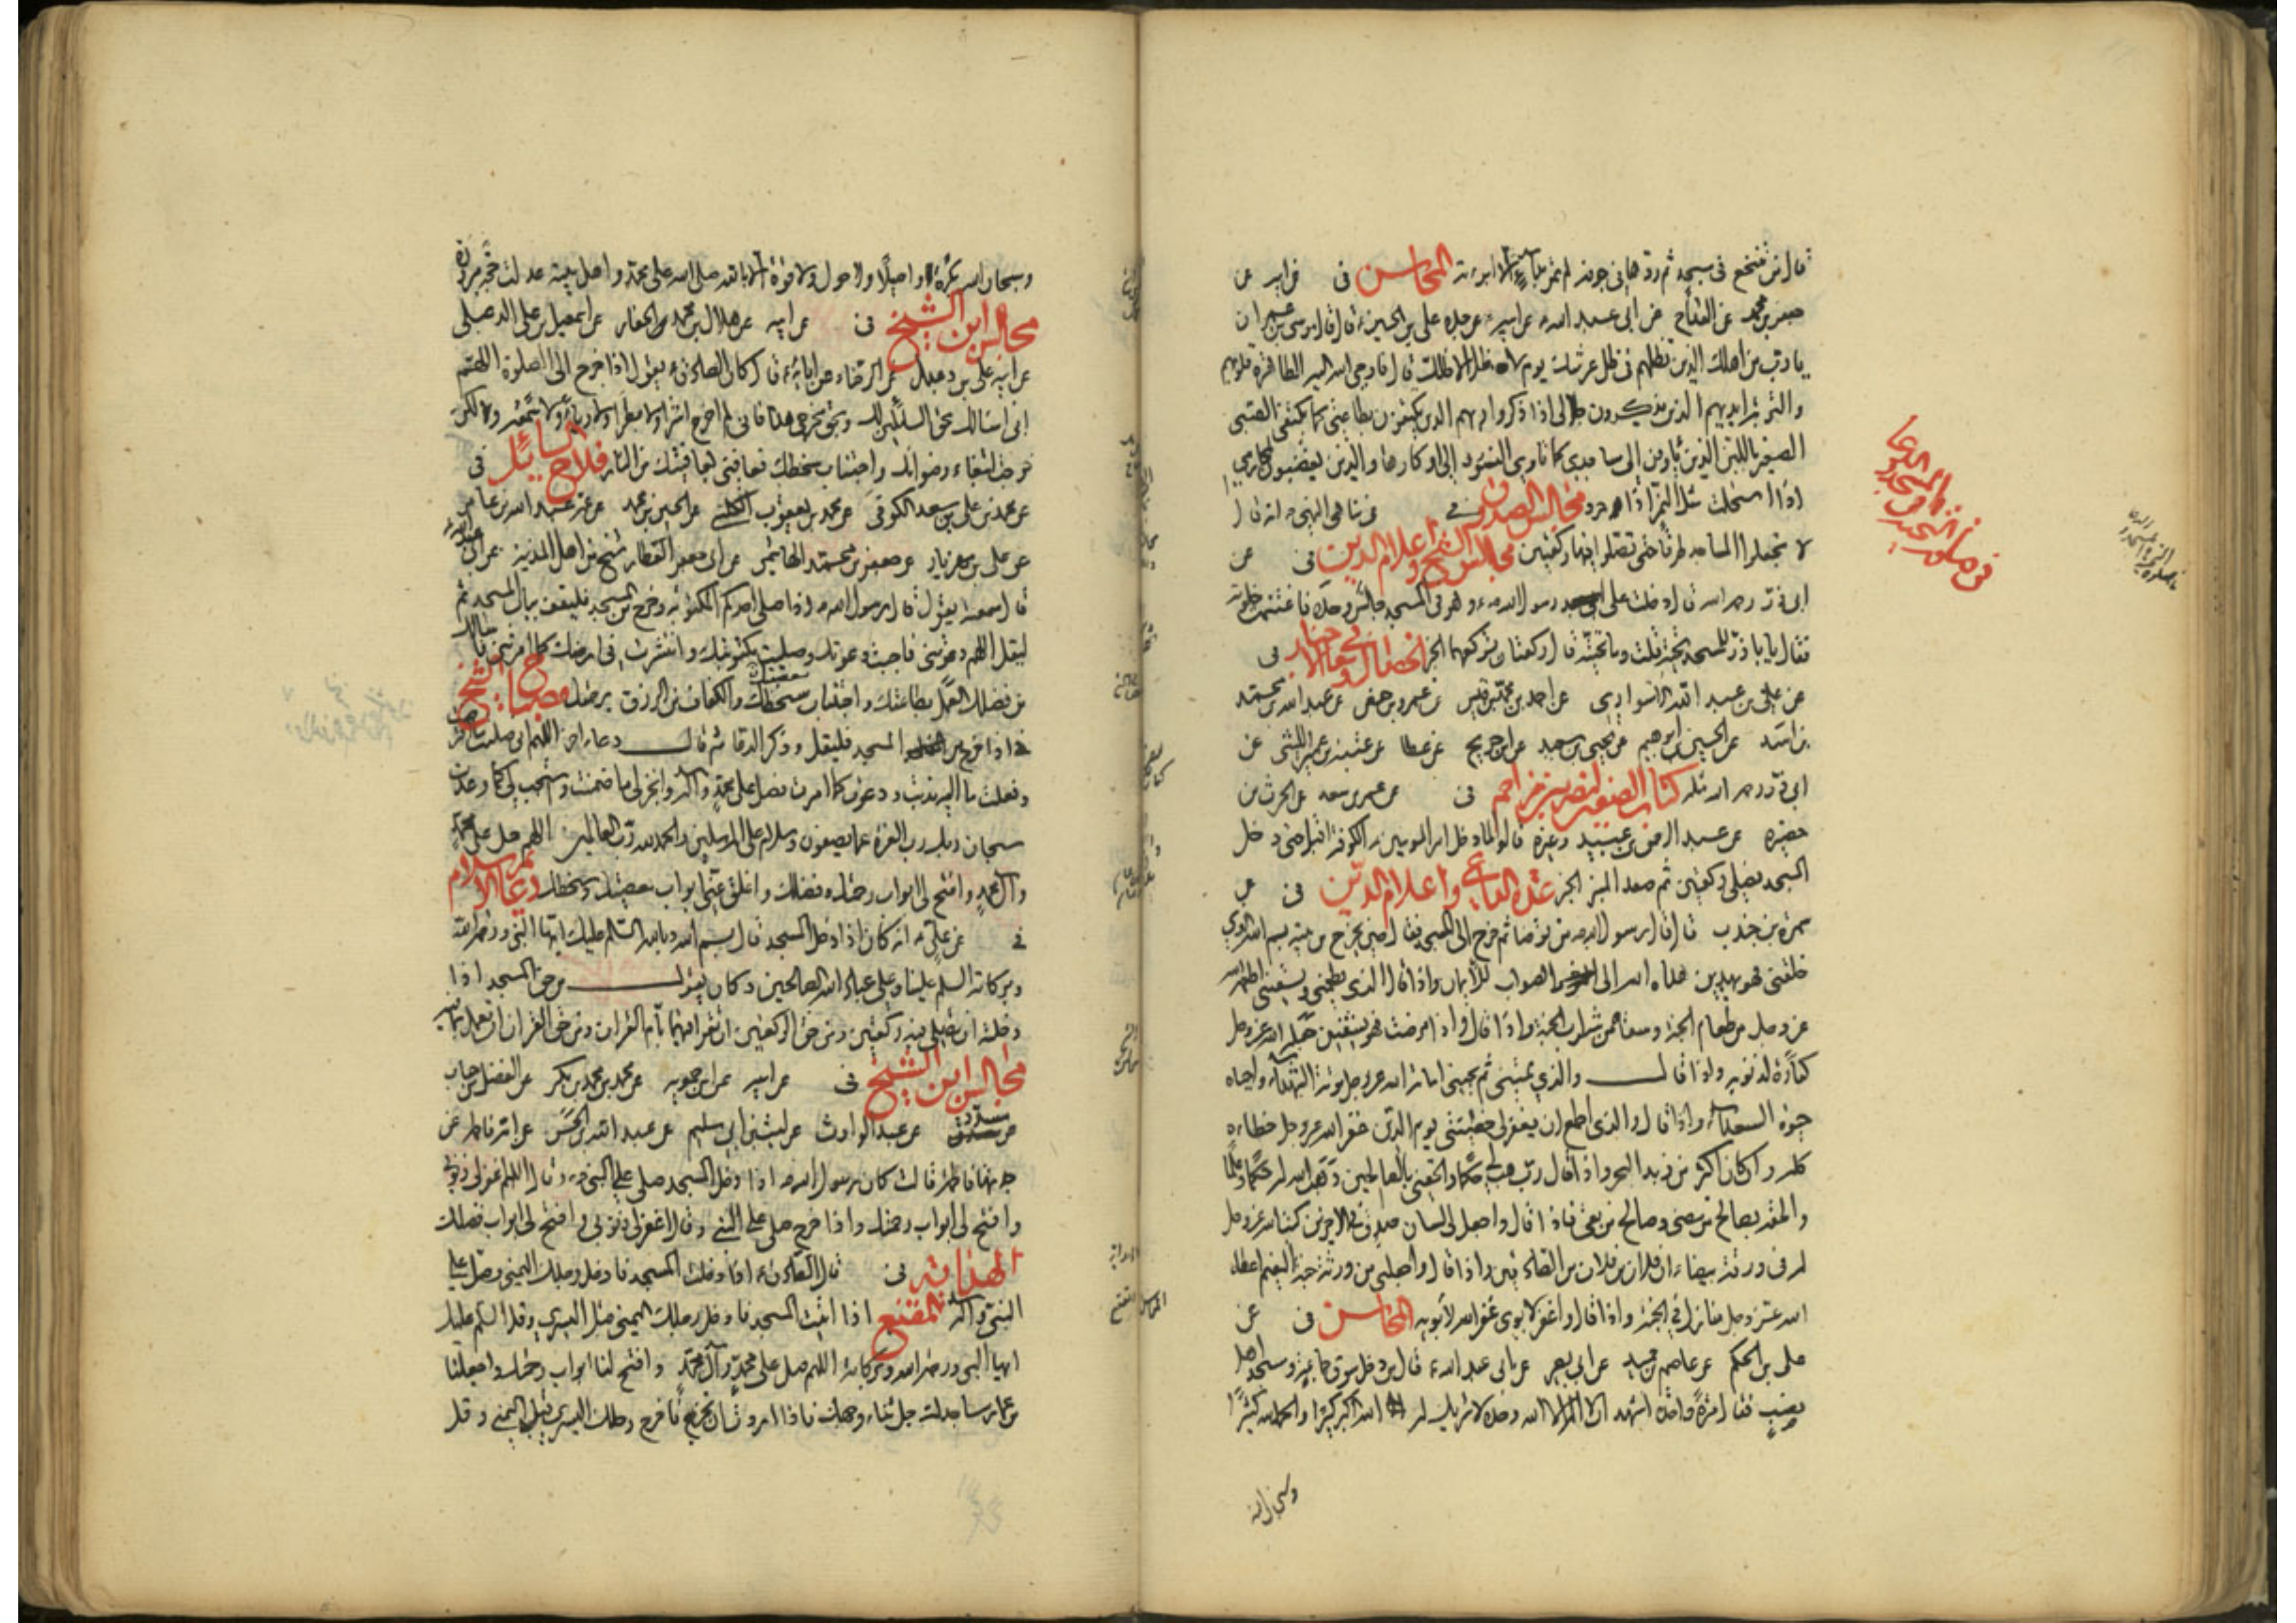 قال من تنخع في مسجد ثم ردها في جوفه لم تمر بداء الا ابرأته المحاسن في عن ابيه عن
جعفر بن محمد عن القداح عن ابي عبد الله عن ابيه عن جده علي بن الحسين قال قال موسى بن عمران
يا رب من اهلك الذين تظلهم في ظل عرشك يوم لا ظل الا ظلك قال فاوحى الله اليه الطاهرة قلوبهم
والتربة ايديهم الذين يذكرون جلالي اذا ذكروا ربهم الذين يكتفون بطاعتي كما يكتفي الصبي
الصغير باللبن الذين ياوون الى مساجدي كما تاوي النسور الى اوكارها والذين يغضبون لمحارمي
اذا استحلت مثل النمر اذا حرد مجالس الصدوق في مناهي النبي انه قال
لا تجعلوا المساجد طرقا حتى تصلوا فيها ركعتين مجالس الشيخ واعلام الدين في عن
ابي ذر رحمه الله قال دخلت على رسول الله وهو في المسجد جالس وحده فاغتنمت خلوته
فقال يا ابا ذر للمسجد تحية قلت وما تحيته قال ركعتان تركعهما الخبر الخصال ومعاني الاخبار في
عن علي بن عبد الله الاسواري عن احمد بن محمد بن قيس عن عمرو بن حفص عن عبد الله بن محمد
بن اسد عن الحسين بن ابرهيم عن يحيى بن سعيد عن ابن جريج عن عطا عن عتبة بن عمير الليثي عن
ابي ذر رحمه الله مثله كتاب الصفين لنصر بن مزاحم في عن عمر بن سعد عن الحرث بن
حضيرة عن عبد الرحمن بن عبيد وغيره قالوا لما دخل امير المومنين الكوفة اقبل حتى دخل
المسجد فصلى ركعتين ثم صعد المنبر الخبر عدة الداعي واعلام الدين في عن
سمرة بن جندب قال قال رسول الله من توضا ثم خرج الى المسجد فقال حين يخرج من بيته بسم الله الذي
خلقني فهو يهدين هداه الله الى الصواب للايمان واذا قال والذي يطعمني ويسقيني اطعمه الله
عز وجل من طعام الجنة وسقاه من شراب الجنة واذا قال واذا مرضت فهو يشفين جعله الله عز وجل
كفارة لذنوبه واذا قال والذي يميتني ثم يحيين اماته الله عز وجل موتة الشهداء واحياه
حيوة السعداء واذا قال والذي اطمع ان يغفر لي خطيئتي يوم الدين غفر الله عز وجل خطاءه
كله وان كان اكثر من زبد البحر واذا قال رب هب لي حكما والحقني بالصالحين وهب الله له حكما وعلما
والحقه بصالح من مضى وصالح من بقي فاذا قال واجعل لي لسان صدق في الاخرين كتب الله عز وجل
له في ورقة بيضاء ان فلان بن فلان من الصادقين واذا قال واجعلني من ورثة جنة النعيم اعطاه
الله عز وجل منازل في الجنة واذا قال واغفر لابوي غفر الله لابويه المحاسن في عن
علي بن الحكم عن عاصم بن حميد عن ابي بصير عن ابي عبد الله قال من دخل سوق جماعة ومسجد اهل
نصب فقال مرة واحدة اشهد ان لا اله الا الله وحده لا شريك له الله اكبر كبيرا والحمد لله كثيرا
وسبحان الله
وسبحان الله بكرة واصيلا ولا حول ولا قوة الا بالله صلى الله على محمد واهل بيته عدلت حجة مبرورة
مجالس ابن الشيخ في عن ابيه عن هلال بن محمد الحفار عن اسمعيل بن علي الدعبلي
عن ابيه علي بن دعبل عن الرضا عن ابائه قال كان الصادق يقول اذا خرج الى الصلوة اللهم
اني اسئلك بحق السائلين لك وبحق مخرجي هذا فاني لم اخرج اشرا ولا بطرا ولا رياء ولا سمعة ولكن
خرجت ابتغاء رضوانك واجتناب سخطك فعافني بعافيتك من النار فلاح السائل في
عن محمد بن علي بن سعد الكوفي عن محمد بن يعقوب عن الحسين بن محمد عن عبد الله بن عامر
عن علي بن مهزيار عن جعفر بن محمد الهاشمي عن ابي حفص العطار شيخ من اهل المدينة عن ابي عبد الله
قال سمعته يقول قال رسول الله اذا صلى احدكم المكتوبة وخرج من المسجد فليقف بباب المسجد ثم
ليقل اللهم دعوتني فاجبت دعوتك وصليت مكتوبتك وانتشرت في ارضك كما امرتني فاسئلك
من فضلك العمل بطاعتك واجتناب معصيتك سخطك والكفاف من الرزق برحمتك مصباح الشيخ
اذا خرج من المسجد فليقل وذكر الدعاء ثم قال دعاء اخر اللهم اني صليت ما افترضت
وفعلت ما اليه ندبت ودعوت كما امرت فصل على محمد واله وانجز لي ما ضمنت واستجب لي كما وعدت
سبحان ربك رب العزة عما يصفون وسلام على المرسلين والحمد لله رب العالمين اللهم صل على محمد
وال محمد وافتح لي ابواب رحمتك وفضلك واغلق عني ابواب معصيتك وسخطك دعائم الاسلام
في عن علي انه كان اذا دخل المسجد قال بسم الله وبالله السلام عليك ايها النبي ورحمة الله
وبركاته السلم علينا وعلى عباد الله الصالحين وكان يقول من حق المسجد اذا
دخلته ان تصلي فيه ركعتين ومن حق الركعتين ان تقرا فيهما بام القران ومن حق القران ان تعمل بما فيه
مجالس ابن الشيخ في عن ابيه عن ابن حمويه عن محمد بن محمد بن بكر عن الفضل بن حباب
عن مسدد عن عبد الوارث عن ليث بن ابي سليم عن عبد الله بن الحسن عن امه فاطمة عن
جدتها فاطمة قالت كان رسول الله اذا دخل المسجد صلى على النبي وقال اللهم اغفر لي ذنوبي
وافتح لي ابواب رحمتك واذا خرج صلى على النبي وقال اغفر لي ذنوبي وافتح لي ابواب فضلك
الهداية في قال الصادق اذا دخلت المسجد فادخل رجلك اليمنى وصل على
النبي واله المقنع اذا اتيت المسجد فادخل رجلك اليمنى قبل اليسرى وقل السلم عليك
ايها النبي ورحمة الله وبركاته اللهم صل على محمد وآل محمد وافتح لنا ابواب رحمتك واجعلنا
من عمار مساجدك جل ثناء وجهك فاذا اردت ان تخرج فاخرج رجلك اليسرى قبل اليمنى وقل